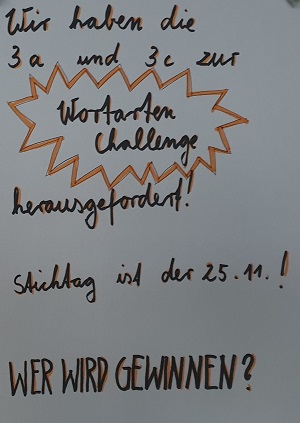 Wir haben die
3a und 3c zur
Wortarten
Challenge
herausgefordert!
Stichtag ist der 25.11.!
WER WIRD GEWINNEN?